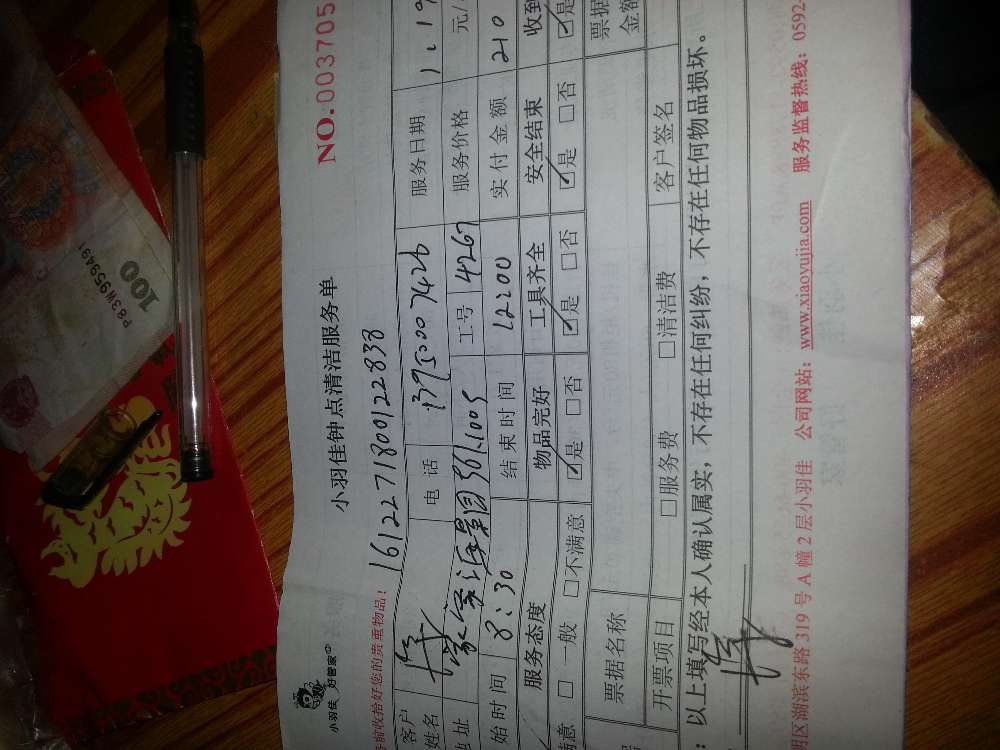 小羽佳 好管家
小羽佳钟点清洁服务单
NO.003705
前收拾好您的贵重物品!
161227180122838
客户姓名
电话 13950007426
服务日期 1.19
地址
361-1005
工号 4267
服务价格
元/
始时间 8:30
结束时间 12:00
实付金额 210
服务态度
物品完好
工具齐全
安全结束
收到
满意 □ 一般 □不满意
☑是 □否
☑是 □否
☑是 □否
☑是
票据名称
票据金额
开票项目
□服务费
□清洁费
客户签名
:以上填写经本人确认属实,不存在任何纠纷,不存在任何物品损坏。
明区湖滨东路 319 号 A 幢 2 层小羽佳 公司网站:www.xiaoyujia.com 服务监督热线:0592-
P83W959491
100